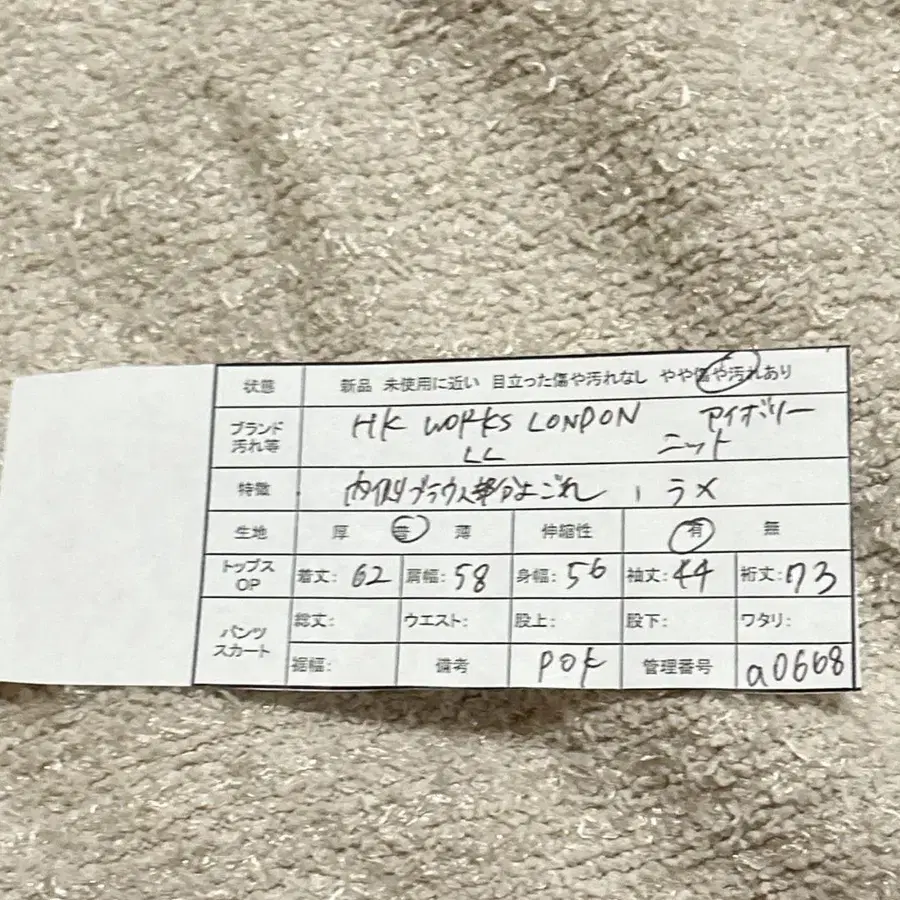 状態 新品 未使用に近い 目立った傷や汚れなし やや傷や汚れあり
ブランド HK WORKS LONDON アイボリー
汚れ等 LL ニット
特徴 内側ブラウス部分よごれ ラメ
生地 厚 普 薄 伸縮性 有 無
トップス OP 着丈: 62 肩幅: 58 身幅: 56 袖丈: 44 裄丈: 73
パンツ スカート 総丈: ウエスト: 股上: 股下: ワタリ:
裾幅: 備考 POK 管理番号 a0668